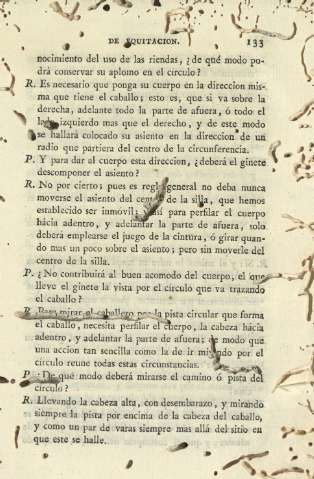 DE EQUITACION. 133
nocimiento del uso de las riendas, ¿de qué modo po-
drá conservar su aplomo en el círculo?
R. Es necesario que ponga su cuerpo en la direccion mis-
ma que tiene el caballo; esto es, que si va sobre la
derecha, adelante todo la parte de afuera, ó todo el
lado izquierdo mas que el derecho, y de este modo
se hallará colocado su asiento en la direccion de un
radio que partiera del centro de la circunferencia.
P. Y para dar al cuerpo esta direccion, ¿deberá el ginete
descomponer el asiento?
R. No por cierto; pues es regla general no deba nunca
moverse el asiento del centro de la silla, que hemos
establecido ser inmovil; así para perfilar el cuerpo
hácia adentro, y adelantar la parte de afuera, solo
deberá emplearse el juego de la cintura, ó girar quan-
do mas un poco sobre el asiento; pero sin moverle del
centro de la silla.
P. ¿No contribuirá al buen acomodo del cuerpo, el que
lleve el ginete la vista por el círculo que va trazando
el caballo?
R. Para mirar el caballero por la pista circular que forma
el caballo, necesita perfilar el cuerpo, la cabeza hácia
adentro, y adelantar la parte de afuera; de modo que
una accion tan sencilla como la de ir mirando por el
círculo reune todas estas circunstancias.
P. ¿De qué modo deberá mirarse el camino ó pista del
círculo?
R. Llevando la cabeza alta, con desembarazo, y mirando
siempre la pista por encima de la cabeza del caballo,
y como un par de varas siempre mas allá del sitio en
que este se halle.